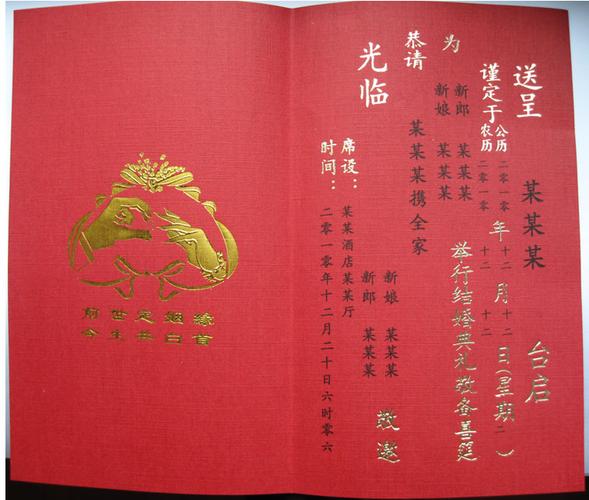 送呈 某某某 台启
谨定于 公历 二零一零 年 十二 月 十二 日(星期二)
农历 二零一零 十二 十二
为 新郎 某某某
新娘 某某某 举行结婚典礼敬备喜筵
恭请 某某某携全家
光临 新娘 某某某
新郎 某某某 敬邀
席设：某某酒店某某厅
时间：二零一零年十二月二十日六时零六
前世定姻缘
今生共白首